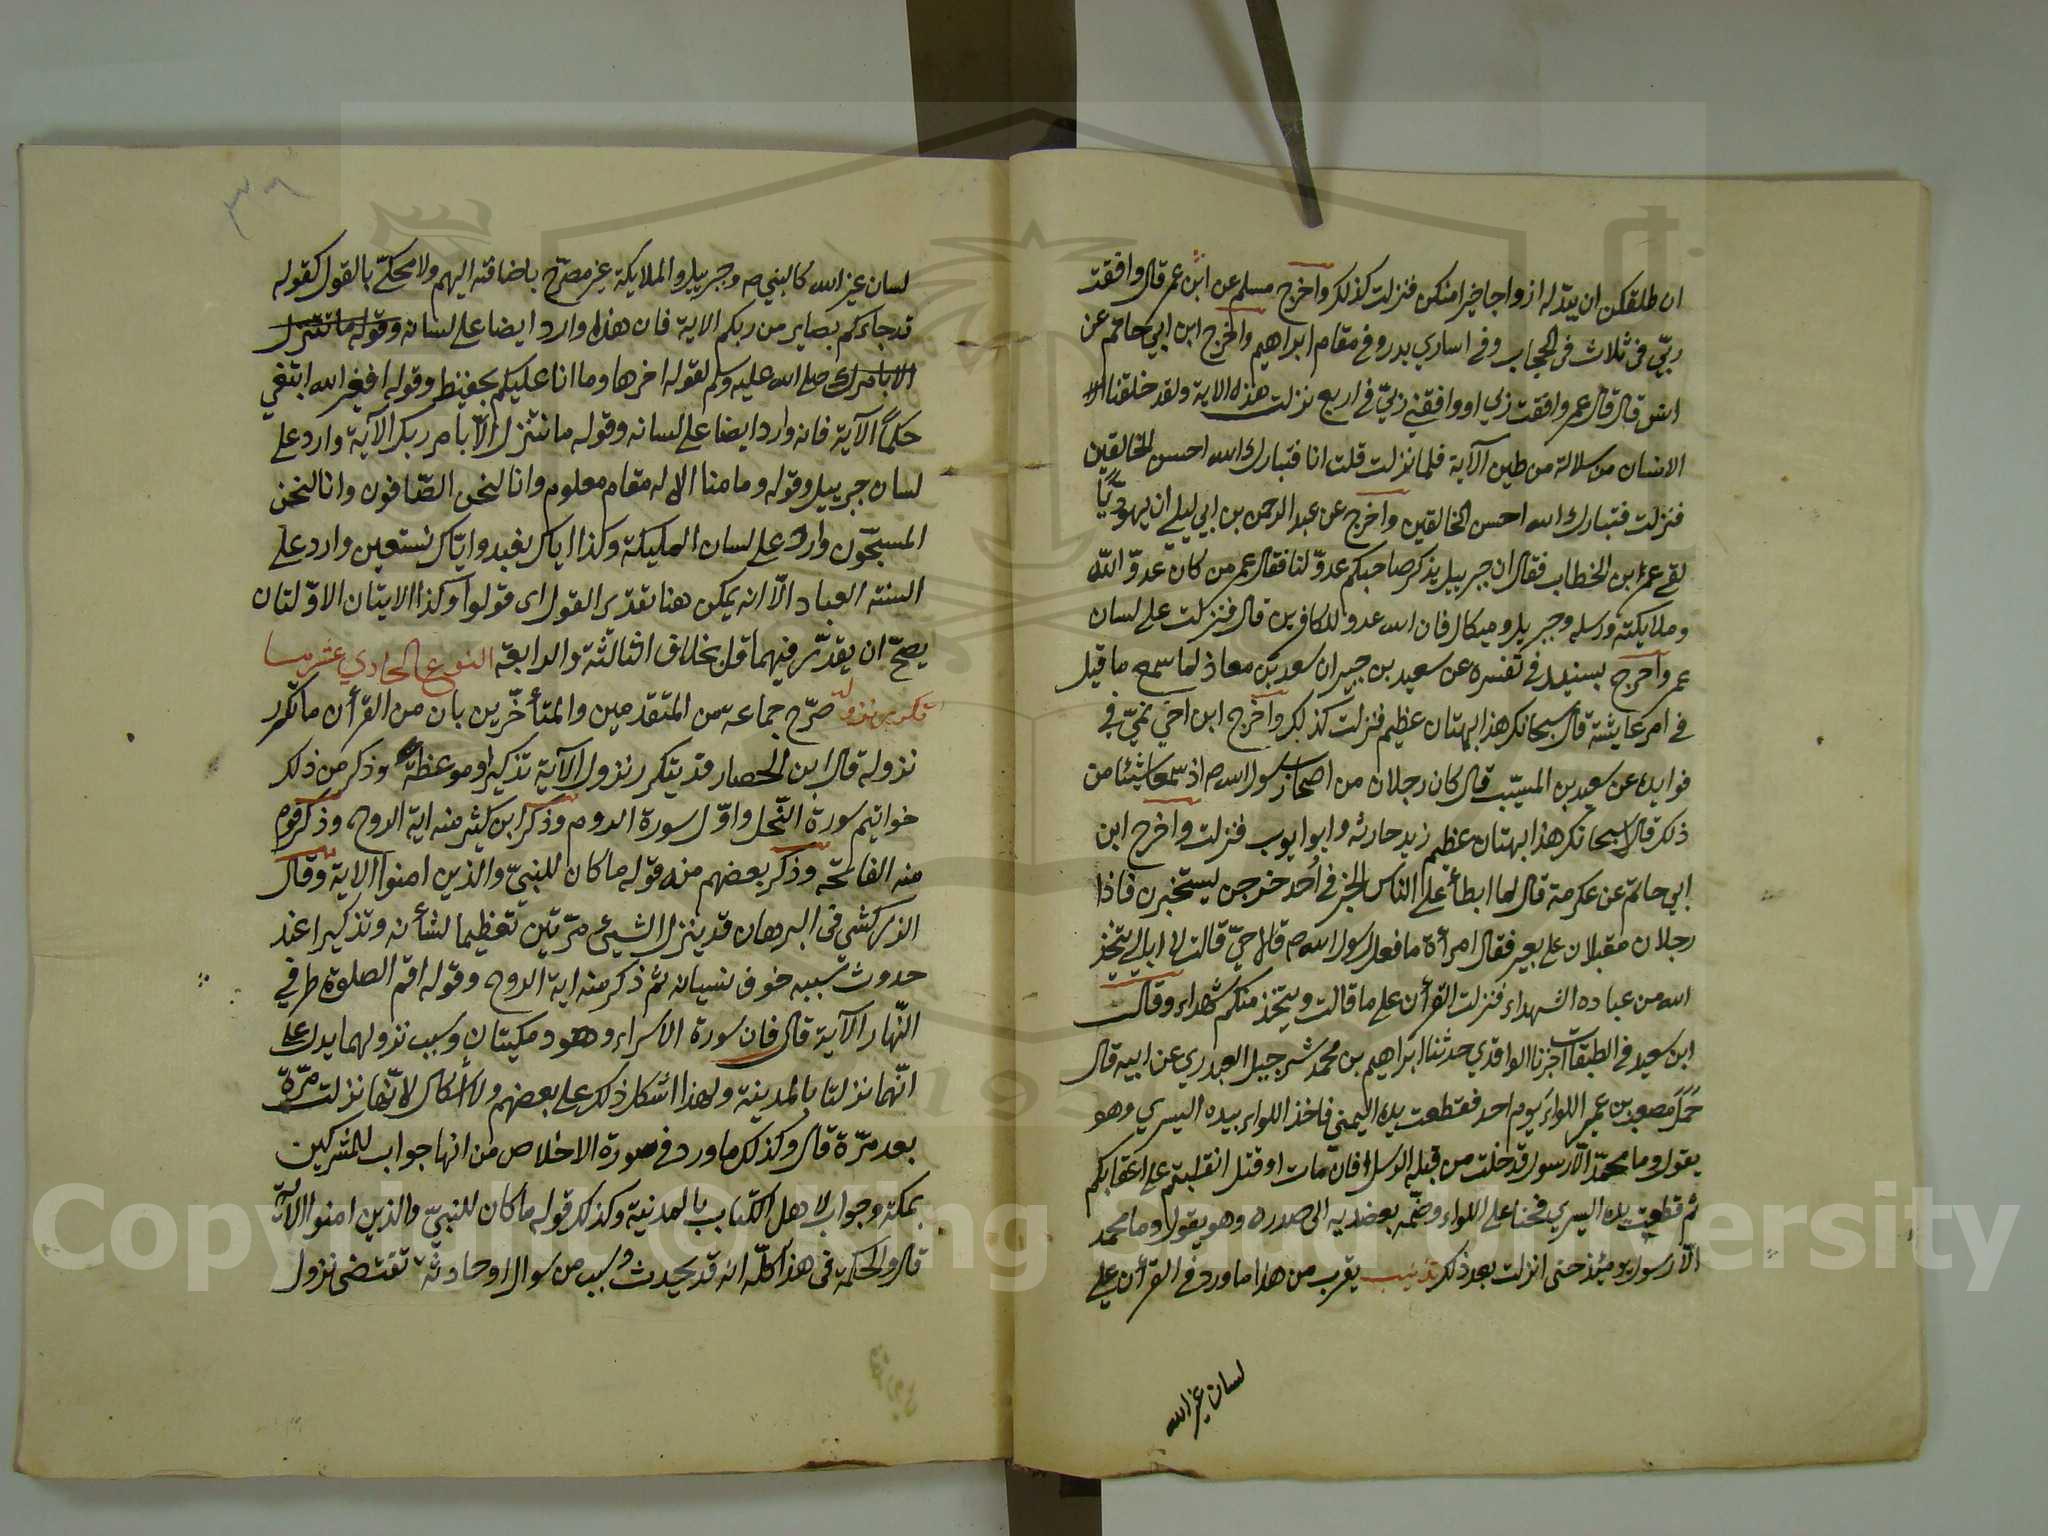 ان طلقكن ان يبدله ازواجا خيرا منكن فنزلت كذلك واخرج مسلم عن ابن عمر قال وافقت
ربي في ثلاث في الحجاب وفي اساري بدر وفي مقام ابراهيم واخرج ابن ابي حاتم عن
انس قال قال عمر وافقت ربي او وافقني ربي في اربع نزلت هذه الاية ولقد خلقنا
الانسان من سلالة من طين الآية فلما نزلت قلت انا فتبارك الله احسن الخالقين
فنزلت فتبارك الله احسن الخالقين واخرج عن عبد الرحمن بن ابي ليلي ان يهوديّا
لقي عمر ابن الخطاب فقال ان جبرييل يذكر صاحبكم عدوّ لنا فقال عمر من كان عدوّ الله
وملايكته ورسله وجبريل وميكال فان الله عدو للكافرين قال فنزلت على لسان
عمر واخرج بسنيد في تفسره عن سعيد بن جبير ان سعد بن معاذ لما سمع ما قيل
في امر عايشة قال سبحانك هذا بهتان عظيم فنزلت كذلك واخرج ابن اخي ميّ في
فوايده عن سعيد بن المسيّب قال كان رجلان من اصحاب رسول الله ص اذ سمعا شيئا من
ذلك قالا سبحانك هذا بهتان عظيم زيد حارثه وابو ايوب فنزلت واخرج ابن
ابي حاتم عن عكرمة قال لما ابطأ على الناس الخبر في اُحد خرجن يستخبرن فاذا
رجلان مقبلان على بعير فقال امرأة ما فعل رسول الله ص قالا حيّ قالت لا ابالي يتخذ
الله من عباده الشهداء فنزلت القرأن على ما قالت ويتخذ منكم شهداء وقالت
ابن سعيد في الطبقات اخبرنا الواقدي حدثنا ابراهيم بن محمد شرجيل العبدري عن ابيه قال
حمل مصعب بن عمير اللواء يوم احد فقطعت يده اليمني فاخذ اللواء بيده اليسري وهو
يقول وما محمدّ الّا رسول قد خلت من قبله الرسل افان مات او قتل انقلبتم على اعقابكم
ثم قطعت يده اليسري فحنا على اللواء وضمّه بعضديه الى صدره وهو يقول وما محمد
الّا رسول يومئذ حتى انزلت بعد ذلك تذنيب يقرب من هذا ما ورد في القرأن على
لسان غير الله
٣٨
لسان غير الله كالنبي ص وجبرييل والملايكة غير مصرّح باضافته اليهم ولا محكيّ بالقول كقوله
قد جاءكم بصاير من ربكم الاية فان هذا وارد ايضا على لسانه وقوله ما نتنزل
الا بامرك صلى الله عليه وسلم لقوله اخرها وما انا عليكم بحفيظ وقوله افغير الله ابتغي
حكمًا الآية فانه وارد ايضا على لسانه وقوله ما نتنزل الّا بامر ربك الآية وارد على
لسان جبرييل وقوله وما منا الا له مقام معلوم وانا لنحن الصّافون وانا لنحن
المسبحّون وارد على لسان المليكة وكذا اياك نعبد وايّاك نستعين وارد على
السنة العباد الّا انه يمكن هنا تقدير القول اى قولوا وكذا الايتان الاوّلتان
يصحّ ان يقدّر فيهما قل بخلاف الثالثة والرابعة النوع الحادي عشر ما
تكرر نزوله صرّح جماعة من المتقدمين والمتأخّرين بان من القرأن ما تكرر
نزوله قال ابن الحصار قد يتكرر نزول الآية تذكيرا وموعظة وذكر من ذلك
خواتيم سورة النّحل واوّل سورة الروم وذكر ابن كثير منه اية الروح وذكر قوم
منه الفاتحة وذكر بعضهم منه قوله ما كان للنبيّ والذين امنوا الاية وقال
الزركشي في البرهان قد ينزل الشيئ مرّتين تعظيما لشأنه وتذكيرا عند
حدوث سببه خوف نسيانه ثم ذكر منه اية الروح وقوله اقم الصلوة طرفي
النّهار الآية قال فان سورة الاسراء وهود مكيتان وسبب نزولهما يدل على
انّهما نزلتا بالمدينة ولهذا اشكل ذلك على بعضهم ولا اشكال لانّها نزلت مرّة
بعد مرّة قال وكذلك ما ورد في سورة الاخلاص من انها جواب للمشركين
بمكة وجواب لاهل الكتاب بالمدنية وكذلك قوله ما كان للنبيّ والذين امنوا الآية
قال والحكمة في هذا كلّه انه قد يحدث سبب من سوال او حادثة تقتضي نزول
Copyright © King Saud University